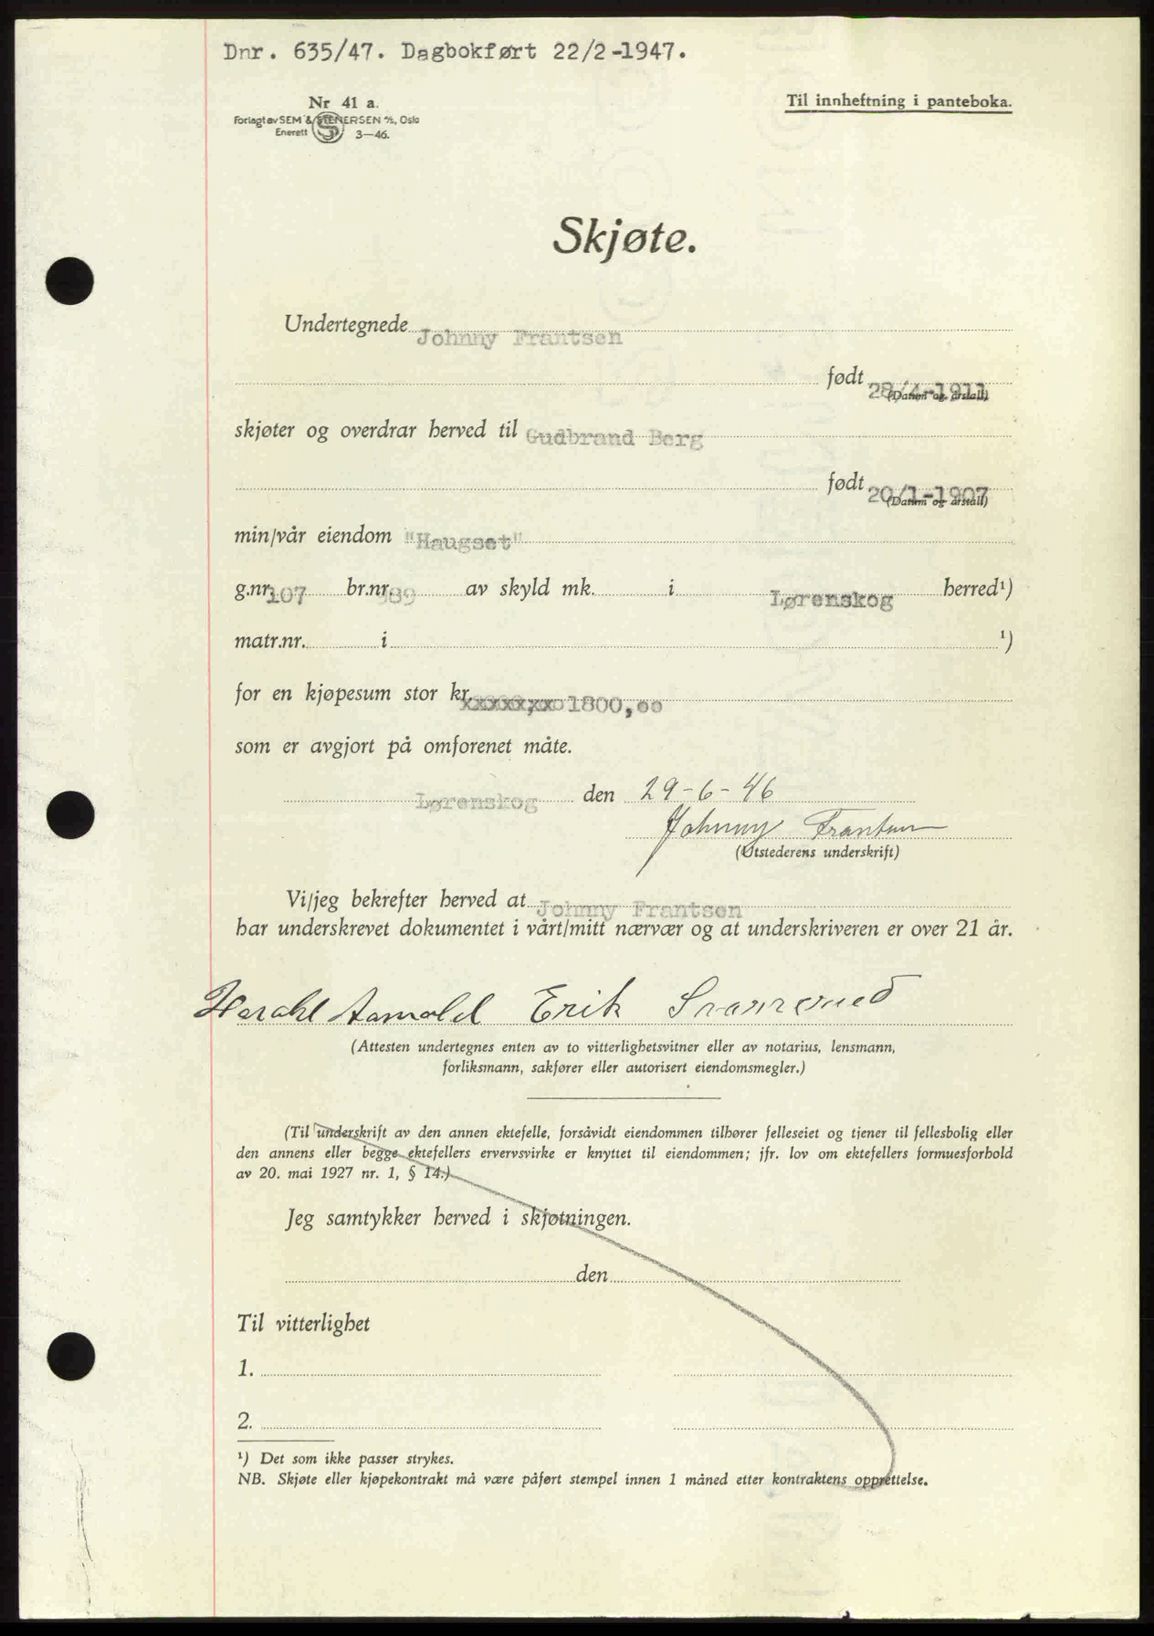 Dnr. 635/47. Dagbokført 22/2-1947.
Nr 41 a.
Forlagt av SEM & STENERSEN A/S, Oslo
Enerett 3—46.
Til innheftning i panteboka.
Skjøte.
Undertegnede Johnny Frantsen
født 28/4-1911
(Datum og årstall)
skjøter og overdrar herved til Gudbrand Berg
født 20/1-1907
(Datum og årstall)
min/vår eiendom "Haugset"
g.nr. 107 br.nr. 389 av skyld mk. i Lørenskog herred¹)
matr.nr. i ¹)
for en kjøpesum stor kr. 1800,oo
som er avgjort på omforenet måte.
Lørenskog den 29-6-46
Johnny Frantsen
(Utstederens underskrift)
Vi/jeg bekrefter herved at Johnny Frantsen
har underskrevet dokumentet i vårt/mitt nærvær og at underskriveren er over 21 år.
Harald Erik
(Attesten undertegnes enten av to vitterlighetsvitner eller av notarius, lensmann,
forliksmann, sakfører eller autorisert eiendomsmegler.)
(Til underskrift av den annen ektefelle, forsåvidt eiendommen tilhører felleseiet og tjener til fellesbolig eller
den annens eller begge ektefellers ervervsvirke er knyttet til eiendommen; jfr. lov om ektefellers formuesforhold
av 20. mai 1927 nr. 1, § 14.)
Jeg samtykker herved i skjøtningen.
den
Til vitterlighet
1.
2.
¹) Det som ikke passer strykes.
NB. Skjøte eller kjøpekontrakt må være påført stempel innen 1 måned etter kontraktens opprettelse.